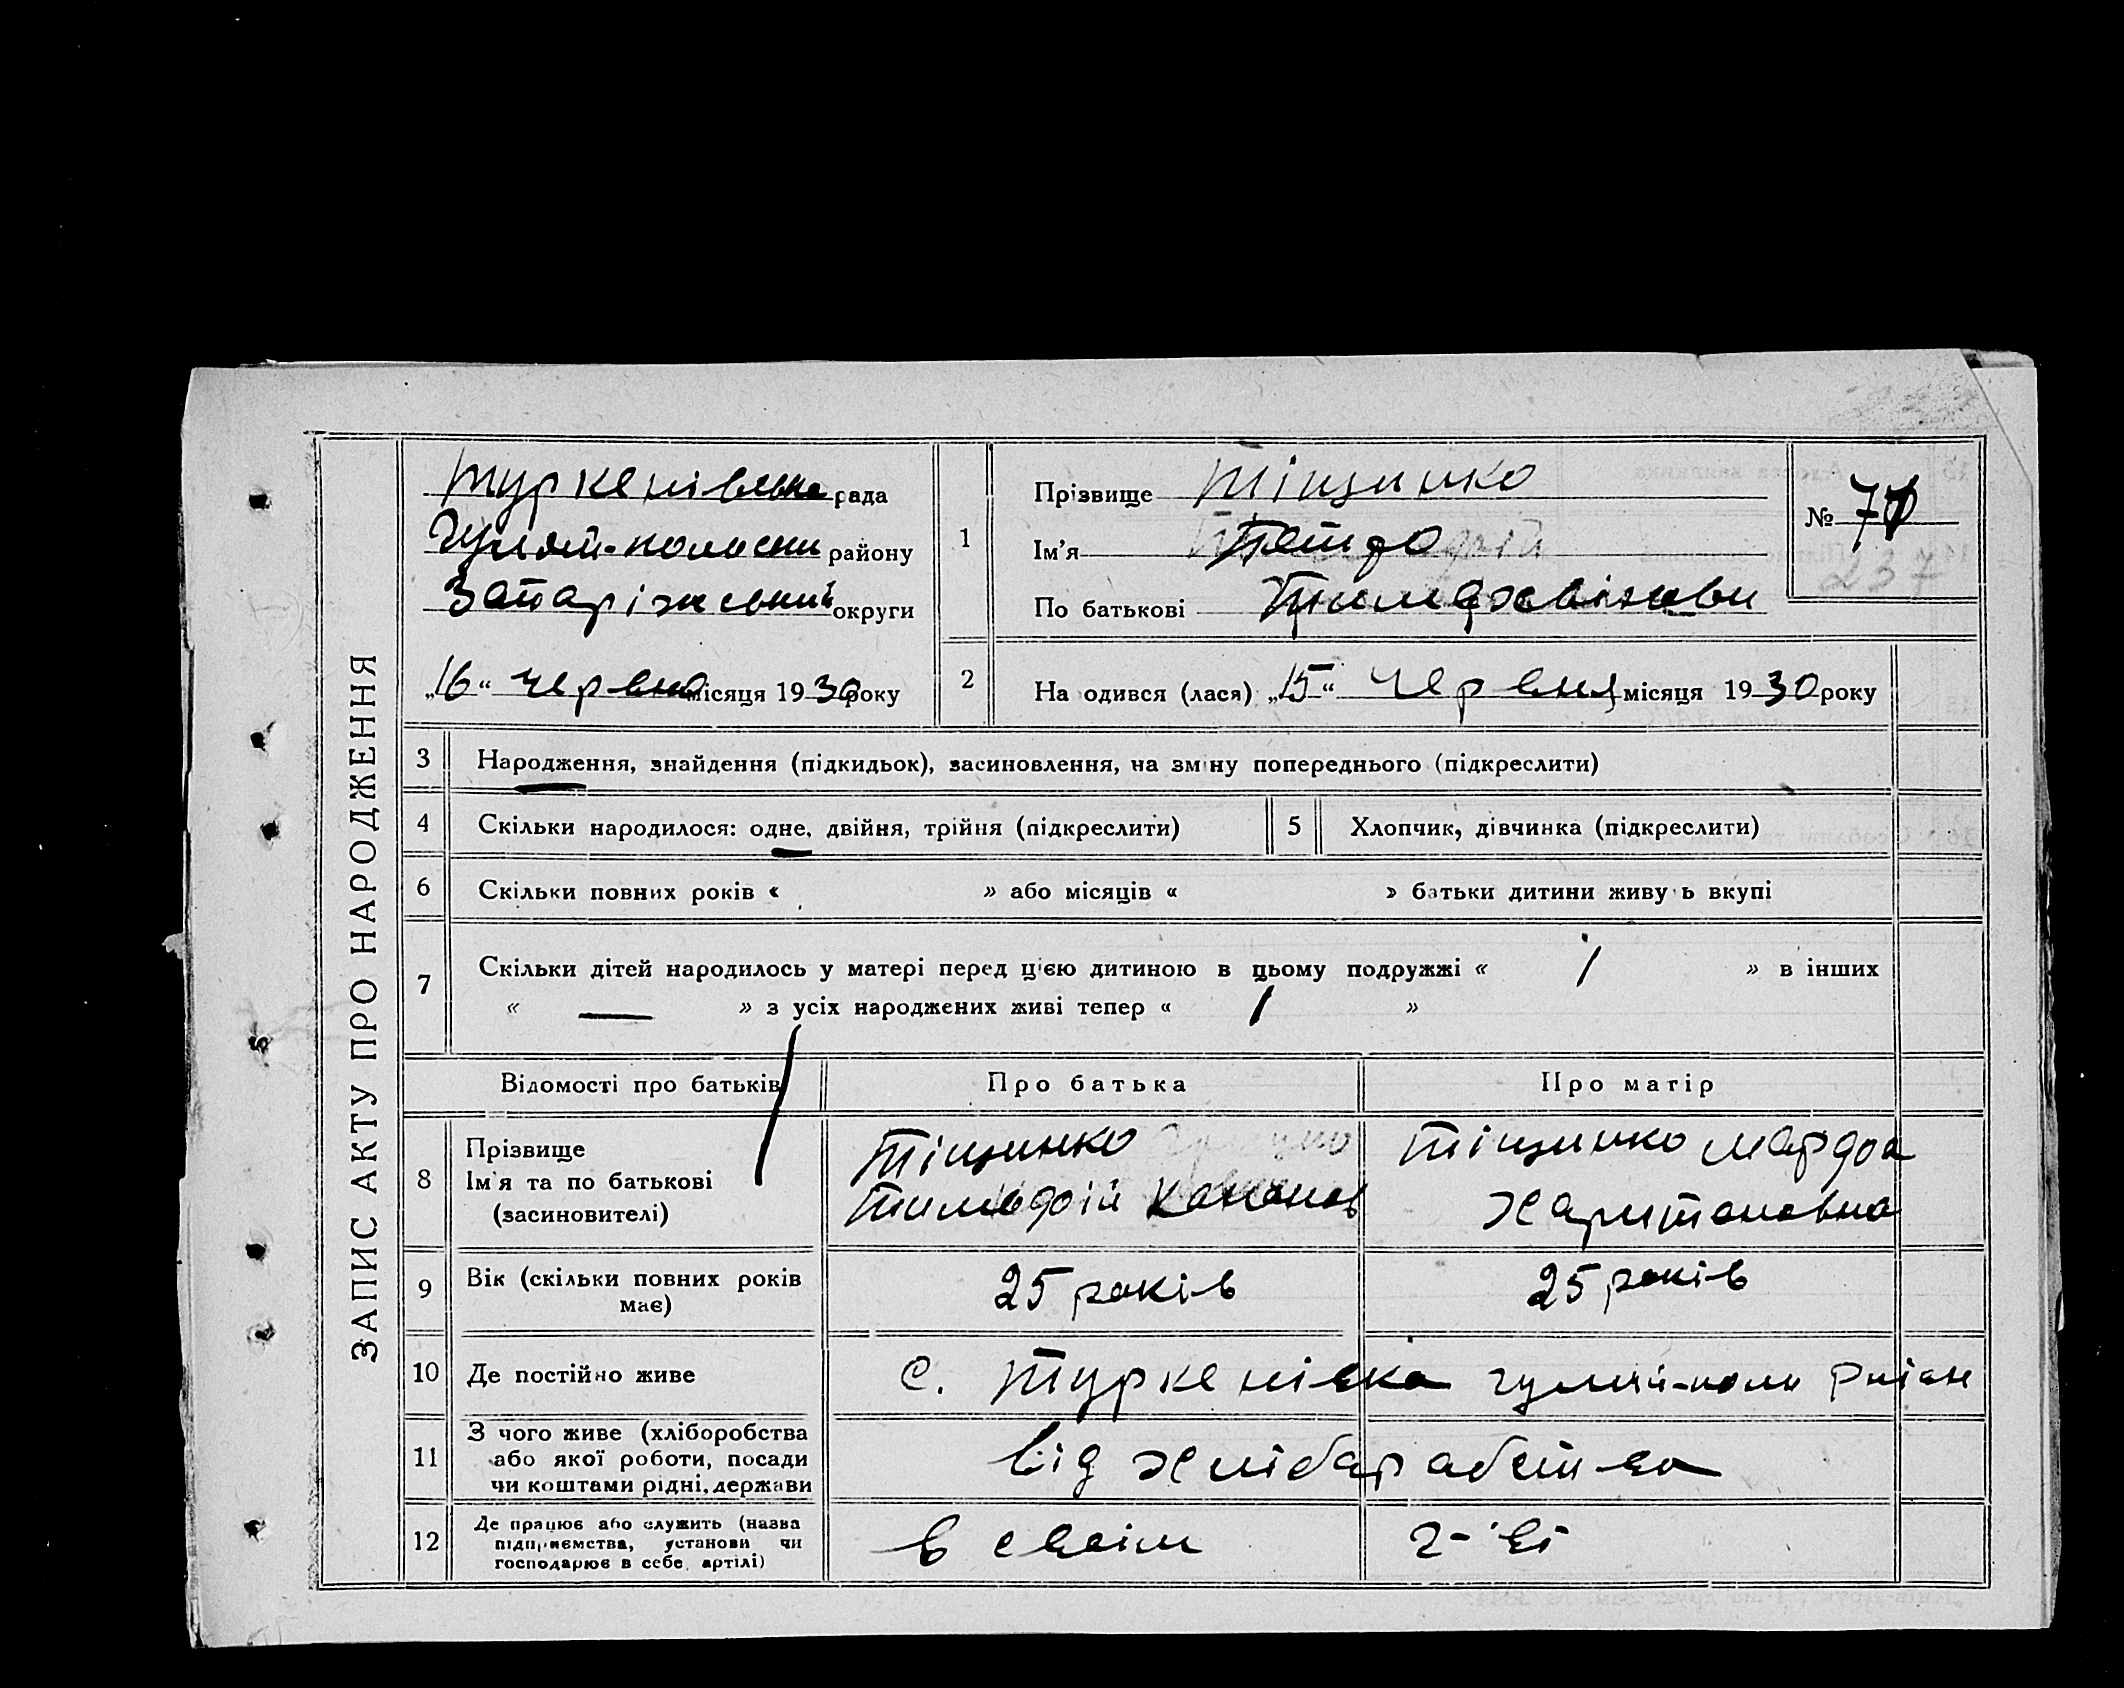 ЗАПИС АКТУ ПРО НАРОДЖЕННЯ
Туркенівська рада
Гуляй-полески району
Запаріжський округи
„16“ червня місяця 1930 року
1
Прізвище Тіщинко
Ім'я Петро
По батькові
№ 237
2
На одився (лася) „15“ Червня місяця 1930 року
3 Народження, знайдення (підкидьок), засиновлення, на зміну попереднього (підкреслити)
4 Скільки народилося: одне, двійня, трійня (підкреслити)
5 Хлопчик, дівчинка (підкреслити)
6 Скільки повних років « » або місяців « » батьки дитини живу ь вкупі
7 Скільки дітей народилось у матері перед цією дитиною в цьому подружжі « 1 » в інших
« — » з усіх народжених живі тепер « 1 »
Відомості про батьків
Про батька
Про матір
8
Прізвище
Ім'я та по батькові
(засиновителі)
Тіщинко
Тимофій Канонов
Тіщинко Марфа
Харитоновна
9
Вік (скільки повних років
має)
25 років
25 років
10 Де постійно живе
с. Туркенівка гуляй-поли
11
З чого живе (хліборобства
або якої роботи, посади
чи коштами рідні, держави
від хлібарабства
12
Де працює або служить (назва
підприємства, установи чи
господарює в себе, артілі)
в своім г-ві